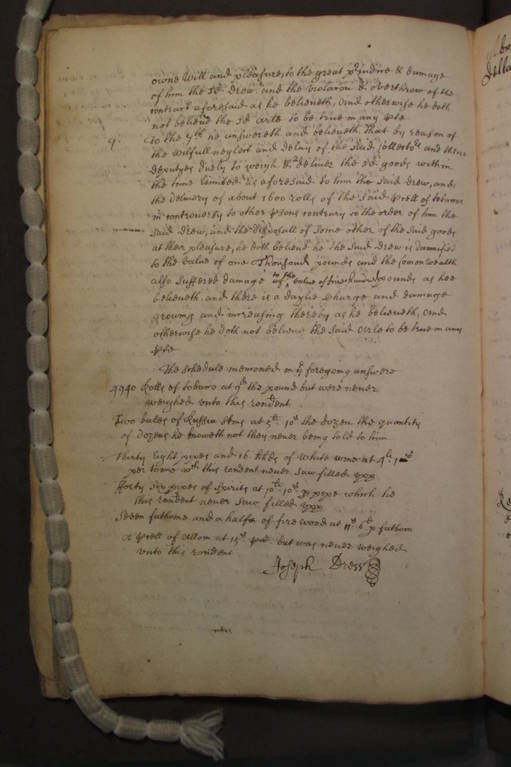 owne will and pleasure, to the great p'iudice & damage
of him the sd. Drew and the violacon & overthrow of the
contract aforesaid as he beleiveth, And otherwise he doth
not beleive the sd. arle to be true in any pte
9. To the 9th he answereth and beleiveth that by reason of
the wilfull neglect and delay of the said Collectors and their
deputyes duely to weigh & deliver the sd. goods within
the time limited as aforesaid to him the said Drew, and
the delivery of about 1600 rolls of the said pcell of tobacco
in controversy to other psons contrary to the order of him the
said Drew, and the disposall of some other of the said goods
at their pleasure, he doth beleive he the said Drew is damnified
to the value of one Thousand pounds and the Commonwealth
also suffered damage to the value of five hundred pounds as hee
beleiveth and there is a daylie charge and damage
growing and increasing thereby as he beleiveth, And
otherwise he doth not beleive the said Arle to be true in any
pte
The schedule menconed in ye foregoing answere
4940 Rolls of tobacco at 9d the pound but were never
weighed unto this rendent
Two bales of skins at 5s. 10d the dozen the quantity
of dozens he knoweth not they never being told to him
Thirty eight pipes and 16 of white wine at
per tonne wch this rendent never saw filled
fforty six pipes of spirits at p pipe which he
this rendent never saw filled
Seven fathome and a halfe of fire wood at 11s 6d p fathom
A pcell of Allom at 15s but was never weighed
unto this rendent
Joseph Drew